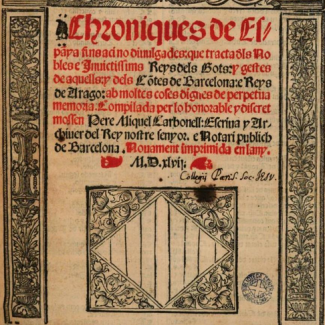 Chroniques de Es-
pãya fins aci no diuulgades: que tracta d̃ls Nobles
e Inuictissims Reys dels Gots: y gestes
de aquells: y dels Cõtes de Barcelona: e Reys
de Arago: ab moltes coses dignes de perpetua
memoria. Compilada per lo honorable y discret
mossen Pere Miquel Carbonell: Escriua y Ar-
chiuer del Rey nostre senyor. e Notari publich
de Barcelona. Nouament imprimida en lany.
M.D.xlvij.
Collegij Paris. Soc. Jesu.